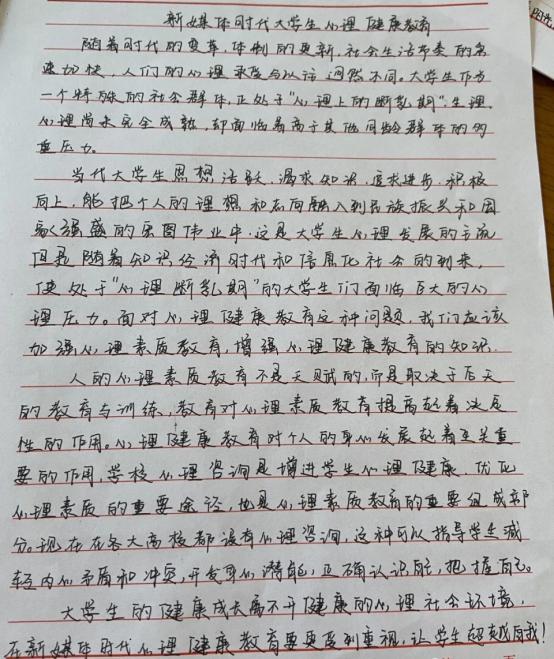 新媒体时代大学生心理健康教育
随着时代的变革,体制的更新,社会生活节奏的急
速加快,人们的心理承受与以往迥然不同。大学生作为
一个特殊的社会群体,正处于“心理上的断乳期”,生理、
心理尚未完全成熟,却面临着高于其他同龄群体的多
重压力。
当代大学生思想活跃,渴求知识,追求进步,积极
向上,能把个人的理想和志向融入到民族振兴和国
家强盛的宏图伟业中,这是大学生心理发展的主流
但是随着知识经济时代和信息化社会的到来,
使处于“心理断乳期”的大学生们面临巨大的心
理压力。面对心理健康教育这种问题,我们应该
加强心理素质教育,增强心理健康教育的知识.
人的心理素质教育不是天赋的,而是取决于后天
的教育与训练,教育对心理素质教育提高起着决定
性的作用。心理健康教育对个人的身心发展起着至关重
要的作用,学校心理咨询是增进学生心理健康、优化
心理素质的重要途径,也是心理素质教育的重要组成部
分。现在在各大高校都设有心理咨询,这种可以指导学生减
轻内心矛盾和冲突,开发身心潜能,正确认识自己,把握自己。
大学生的健康成长离不开健康的心理社会环境,
在新媒体时代心理健康教育要更受到重视,让学生超越自我!